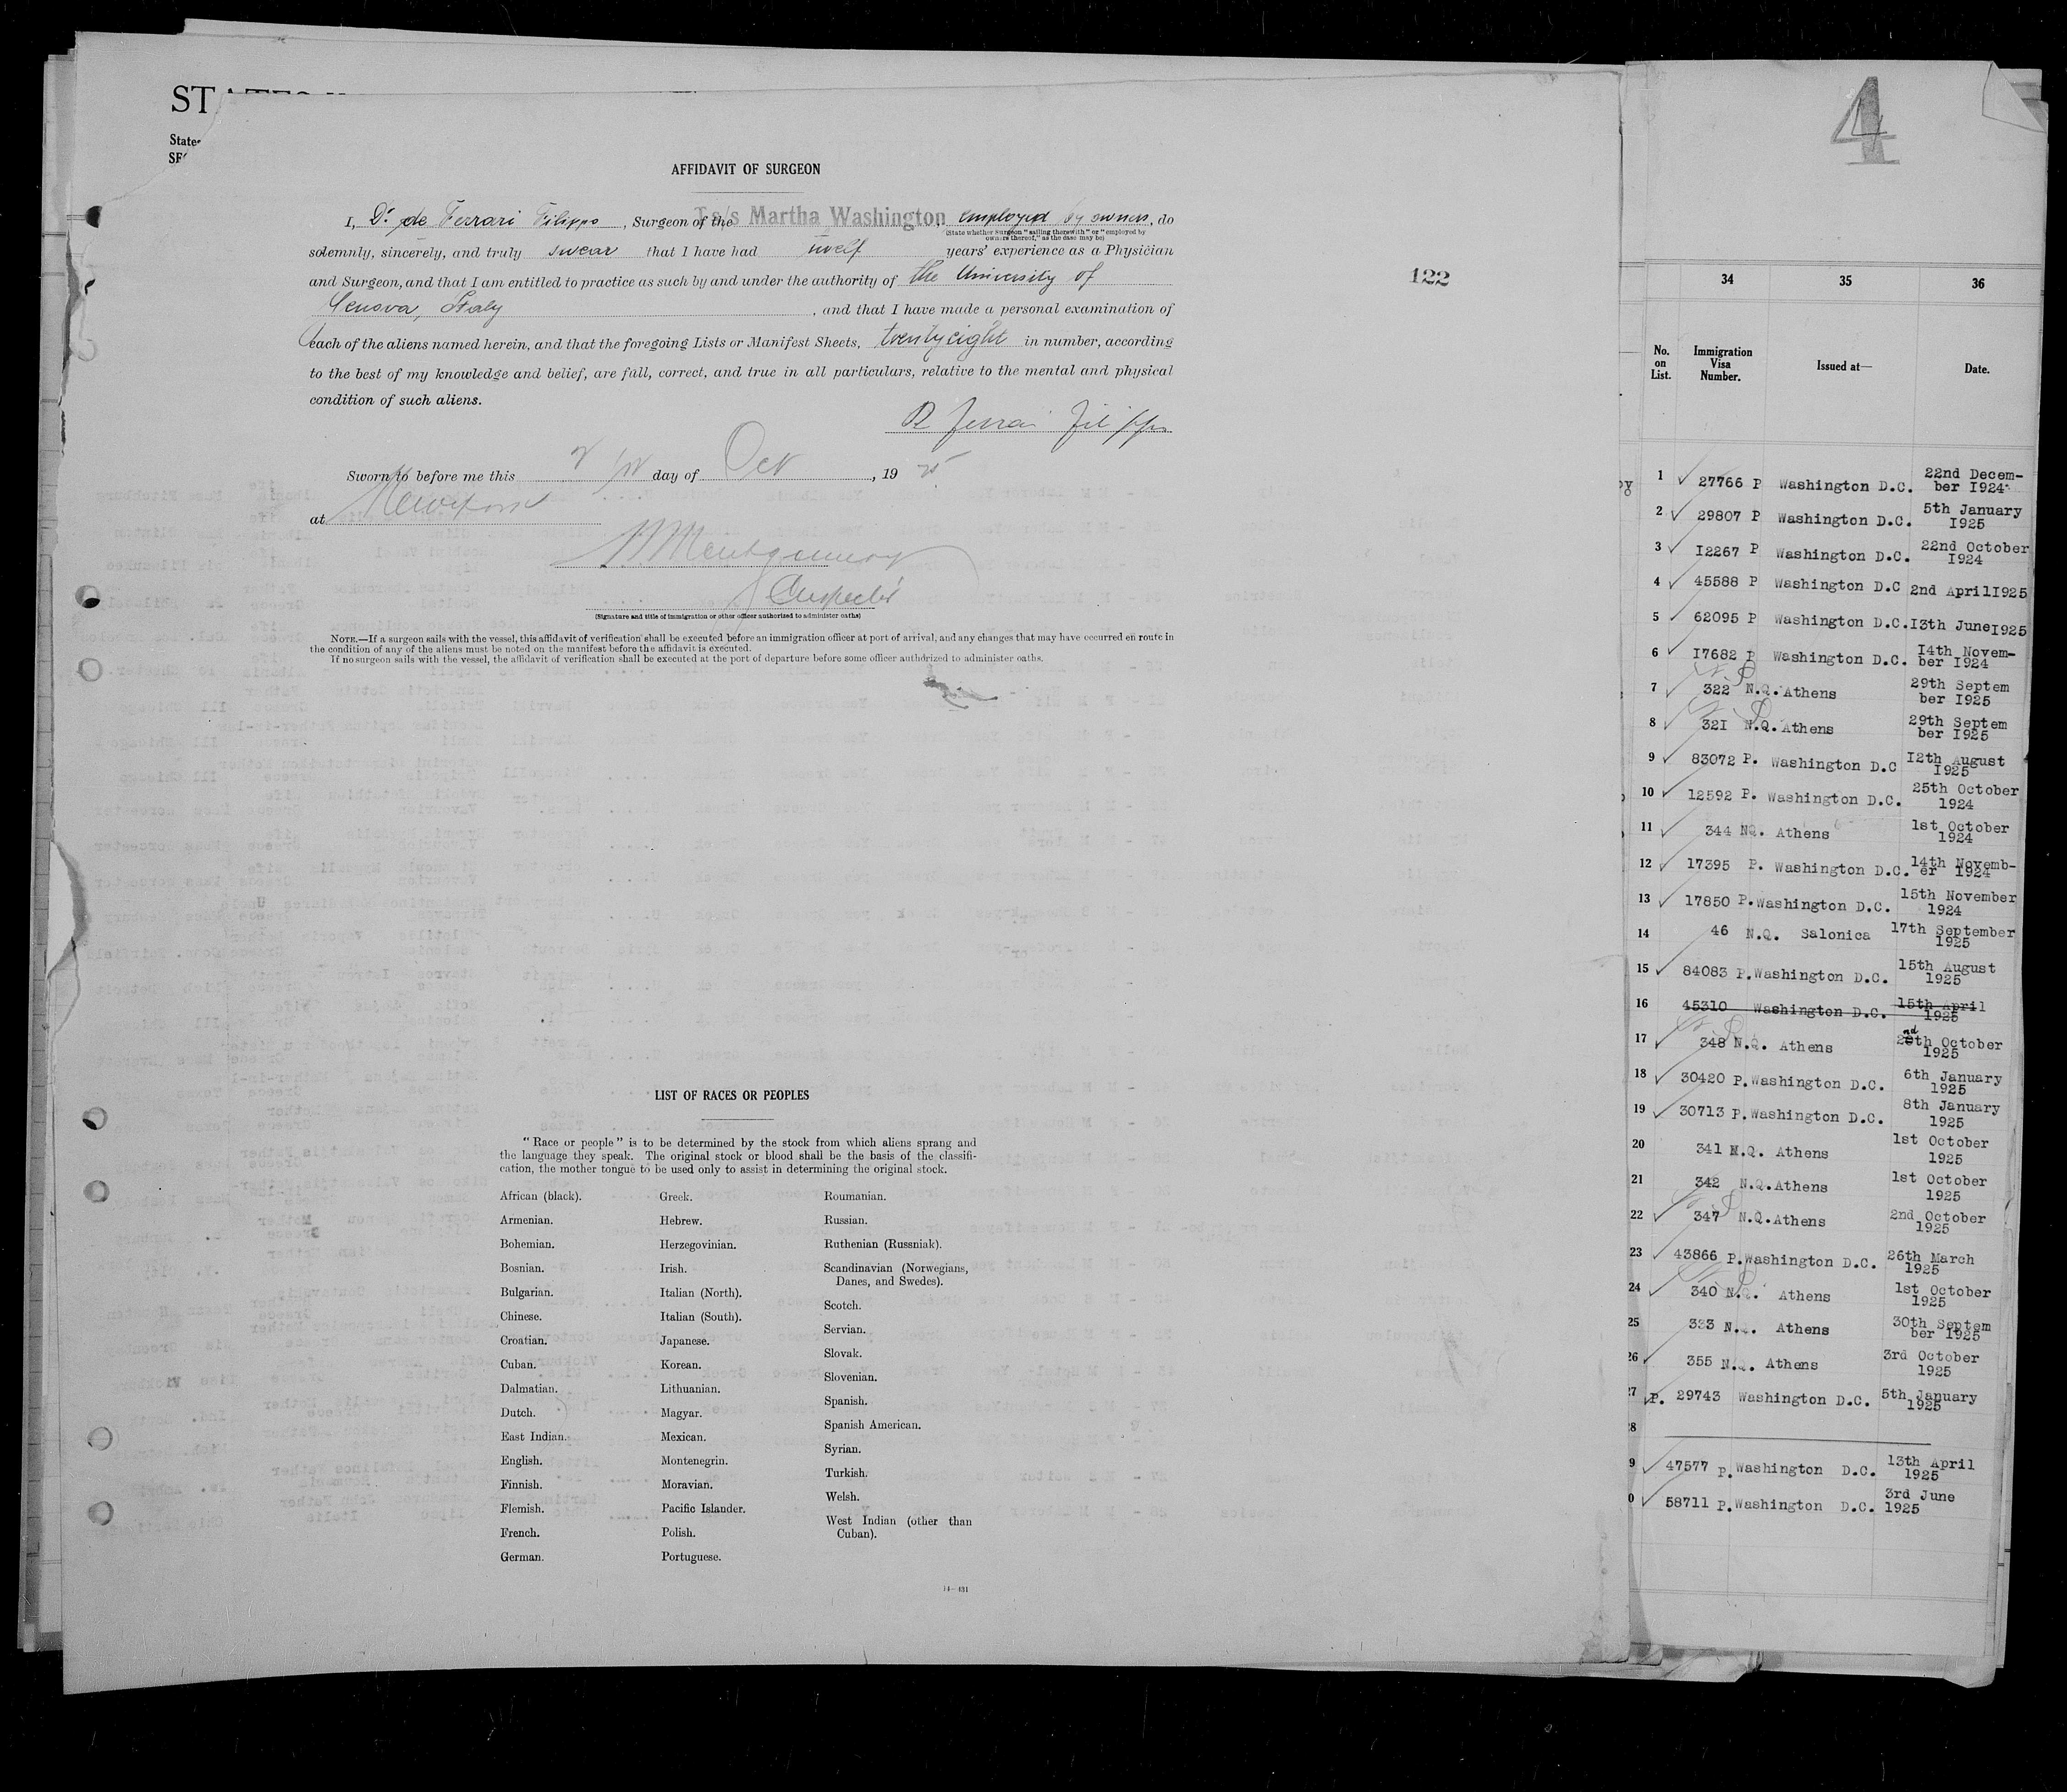 STATES
States
4
AFFIDAVIT OF SURGEON
I, Dr. de Ferrari Filippo, Surgeon of the Ts/s Martha Washington, employed by owners, do
(State whether Surgeon "sailing therewith" or "employed by
owners thereof," as the case may be)
solemnly, sincerely, and truly swear that I have had twelf years' experience as a Physician
and Surgeon, and that I am entitled to practice as such by and under the authority of the University of
Genova, Italy, and that I have made a personal examination of
each of the aliens named herein, and that the foregoing Lists or Manifest Sheets, twenty eight in number, according
to the best of my knowledge and belief, are full, correct, and true in all particulars, relative to the mental and physical
condition of such aliens.
122
Sworn to before me this day of Oct, 19 25
at New York
Montgomery
Inspector
(Signature and title of immigration or other officer authorized to administer oaths)
NOTE.—If a surgeon sails with the vessel, this affidavit of verification shall be executed before an immigration officer at port of arrival, and any changes that may have occurred en route in
the condition of any of the aliens must be noted on the manifest before the affidavit is executed.
If no surgeon sails with the vessel, the affidavit of verification shall be executed at the port of departure before some officer authorized to administer oaths.
LIST OF RACES OR PEOPLES
"Race or people" is to be determined by the stock from which aliens sprang and
the language they speak. The original stock or blood shall be the basis of the classifi-
cation, the mother tongue to be used only to assist in determining the original stock.
African (black).
Armenian.
Bohemian.
Bosnian.
Bulgarian.
Chinese.
Croatian.
Cuban.
Dalmatian.
Dutch.
East Indian.
English.
Finnish.
Flemish.
French.
German.
Greek.
Hebrew.
Herzegovinian.
Irish.
Italian (North).
Italian (South).
Japanese.
Korean.
Lithuanian.
Magyar.
Mexican.
Montenegrin.
Moravian.
Pacific Islander.
Polish.
Portuguese.
Roumanian.
Russian.
Ruthenian (Russniak).
Scandinavian (Norwegians,
Danes, and Swedes).
Scotch.
Servian.
Slovak.
Slovenian.
Spanish.
Spanish American.
Syrian.
Turkish.
Welsh.
West Indian (other than
Cuban).
14—431
34 35 36
No. on List. Immigration Visa Number. Issued at— Date.
1 27766 P Washington D.C. 22nd Decem-
ber I924
2 29807 P Washington D.C. 5th January
I925
3 I2267 P Washington D.C. 22nd October
I924
4 45588 P Washington D.C 2nd AprilI925
5 62095 P Washington D.C. I3th JuneI925
6 I7682 P Washington D.C. I4th Novem-
ber I924
7 322 N.Q. Athens 29th Septem
ber I925
8 32I N.Q. Athens 29th Septem
ber I925
9 83072 P. Washington D.C I2th August
I925
10 12592 P. Washington D.C. 25th October
1924
11 344 NQ. Athens 1st October
1924
12 17395 P. Washington D.C. 14th Novemb-
er 1924
13 17850 P. Washington D.C. 15th November
1924
14 46 N.Q. Salonica 17th September
1925
15 84083 P. Washington D.C. 15th August
1925
16 45310 Washington D.C. 15th April
1925
17 348 N.Q. Athens 2nd October
1925
18 30420 P. Washington D.C. 6th January
1925
19 30713 P. Washington D.C. 8th January
1925
20 341 N.Q. Athens 1st October
1925
21 342 N.Q. Athens 1st October
1925
22 347 N.Q. Athens 2nd October
1925
23 43866 P. Washington D.C. 26th March
1925
24 340 N.Q. Athens 1st October
1925
25 333 N.Q. Athens 30th Septem
ber 1925
26 355 N.Q. Athens 3rd October
1925
27 P. 29743 Washington D.C. 5th January
1925
28
9 47577 P. Washington D.C. 13th April
1925
0 58711 P. Washington D.C. 3rd June
1925